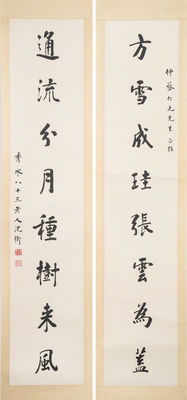 方雪成珪張雲為蓋
仲蔡仁兄先生正
通流分月種樹来風
秀水八十三老人沈衛